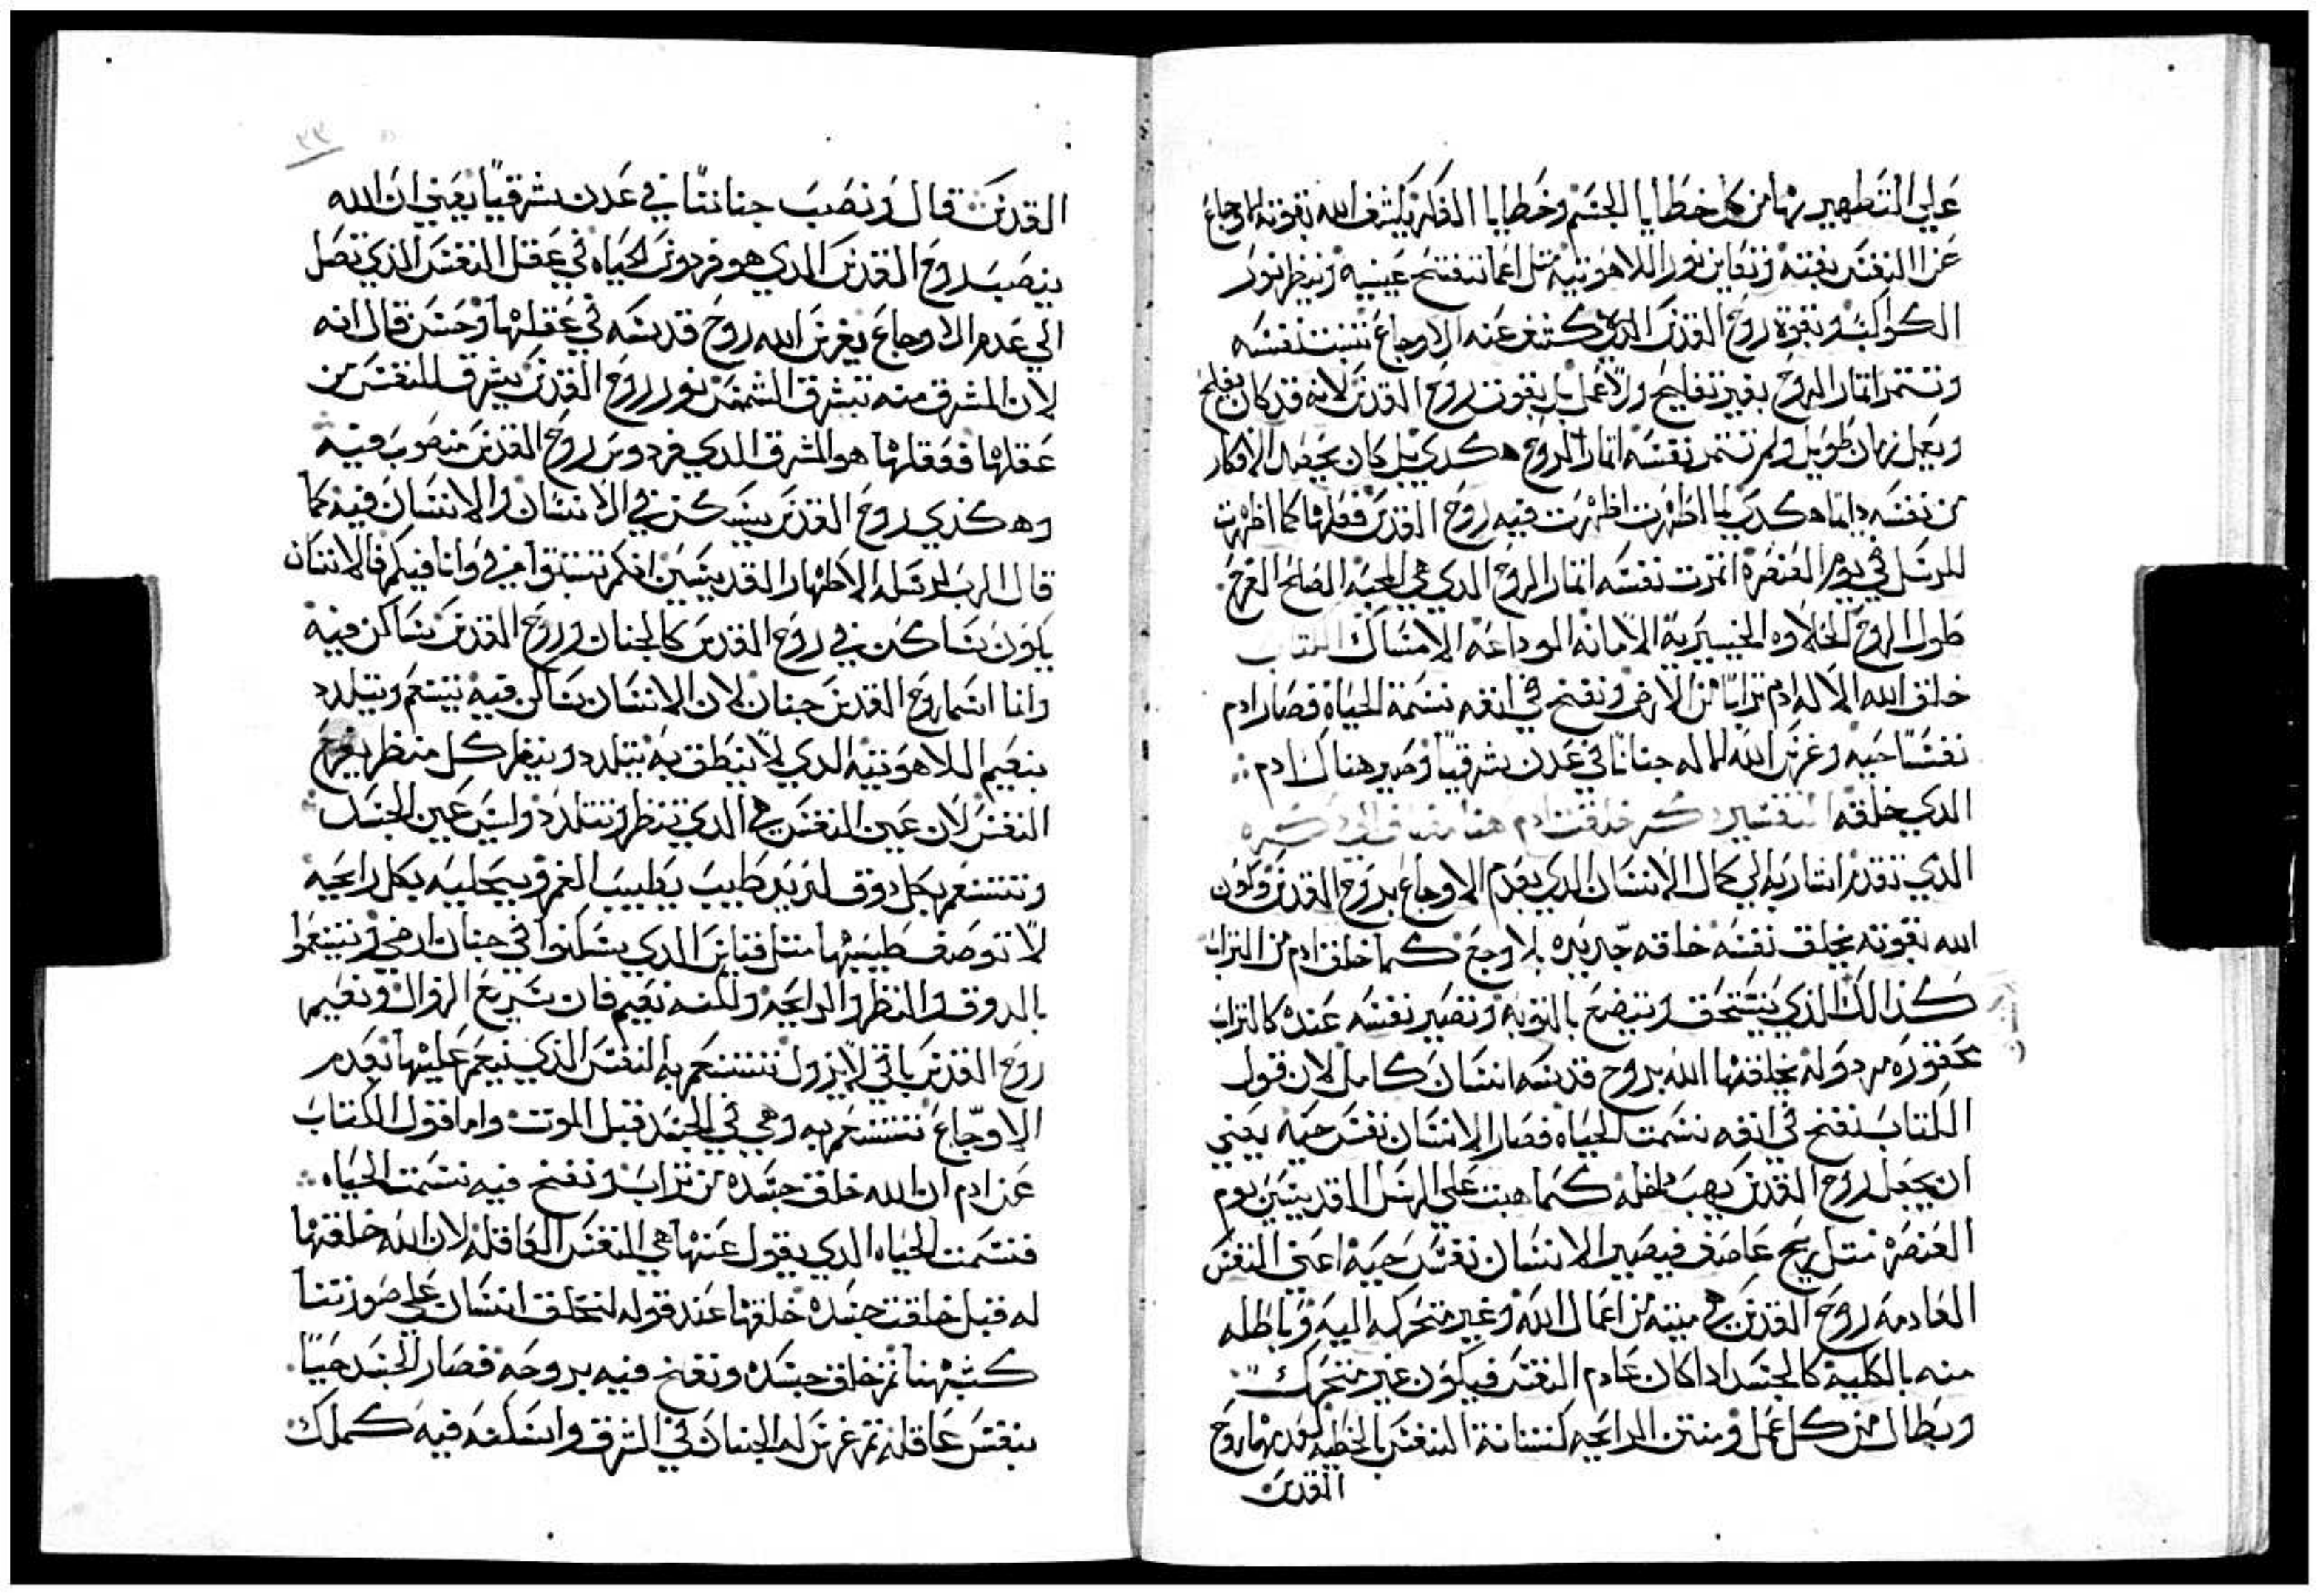 علي التطهير بها من كل خطايا الجسم وخطايا الفكر يكشف الله بقوته الاوجاع
عن النفس بغته وتعاين نور اللاهوتيه متل اعما تنفتح عينيه وينظر نور
الكواكب وبقوة روح القدس الذي كشف عنه الاوجاع تتبت نفسه
وتتمر اتمار الروح بغير تفليح ولا عمل بل بقوت روح القدس لانه قد كان يفلح
ويعمل زمان طويل ولم تتمر نفسه اتمار الروح هكدي بل كان يحفظ الافكار
من نفسه دايما هكدي لما اظهرت اظهرت فيه روح القدس فعلها كما اظهرت
للرسل في يوم العنصره اتمرت نفسه اتمار الروح الدي هي المحبه الصلح الفرح
طول الروح الحلاوه الخيريه الامانه الوداعه الامساك الكتاب
خلق الله الاله ادم ترابا من الارض ونفخ في انفه نسمة الحياة فصار ادم
نفسا حيه وغرس الله الاله جنانا في عدن شرقيا وصير هناك ادم
الدي خلقه التفسير خلقت ادم هنا
الدي تقدم اشار به الي كمال الانسان الدي يعدم الاوجاع بروح القدس ويكون
الله بقوته يخلق نفسه خلقه جديده بلا وجع كما خلق ادم من التراب
كذالك الذي ينسحق ويتضع بالتوبه وتصير نفسه عنده كالتراب
محقوره مردوله يخلقها الله بروح قدسه انسان كامل لان قول
الكتاب نفخ في انفه نسمت الحياه فصار الانسان نفس حيه يعني
ان يجعل روح القدس يهب داخله كما هبت علي الرسل القديسين يوم
العنصره متل ريح عاصف فيصير الانسان نفس حيه اعني النفس
العادمه روح القدس هي ميته من اعمال الله وغير متحركه اليه وباطله
منه بالكليه كالجسد ادا كان عادم النفس فيكون غير متحرك
وبطال من كل عمل ومنتن الرايحه كنتانة النفس بالخطيه لعدمها روح
القدس
القدس قال ونصب جنانتا في عدن شرقيا يعني ان الله
ينصب روح القدس الدي هو فردوس الحياه في عقل النفس الذي تصل
الي عدم الاوجاع يغرس الله روح قدسه في عقلها وحسن قال انه
لان المشرق منه تشرق الشمس نور روح القدس يشرق للنفس من
عقلها فعقلها هو المشرق الدي فردوس روح القدس منصوب فيه
وهكذي روح القدس يسكن في الانسان والانسان فيه كما
قال الرب لرسله الاطهار القديسين انكم تتبتوا في وانا فيكم فالانسان
يكون ساكن في روح القدس كالجنان وروح القدس ساكن فيه
وانا اسما روح القدس جنان لان الانسان ساكن فيه يتنعم ويتلدد
بنعيم اللاهوتيه الدي لا ينطق به يتلدد وينظر كل منظر يفرح
النفس لان عين النفس هي الدي تنظر وتتلدد وليس عين الجسد
وتتنعم بكل دوق لذيذ طيب يطيب الفم ويحليه بكل رايحه
لا توصف طيبتها متل فتاين الدي يسكنوا في جنان ارضي ويتنعموا
بالدوق والنظر والرايحه ولكنه نعيم فان سريع الزوال ونعيم
روح القدس باقي لا يزول تتنعم به النفس الذي ينعم عليها بعدم
الاوجاع تتنعم به وهي في الجسد قبل الموت واما قول الكتاب
عن ادم ان الله خلق جسده من تراب ونفخ فيه نسمت الحياه
فنسمت الحياه الدي يقول عنها هي النفس العاقله لان الله خلقها
له قبل خلقت جسده خلقها عند قوله لنخلق انسان علي صورتنا
كشبهنا تم خلق جسده ونفخ فيه بروحه فصار الجسد حيا
بنفس عاقله تم غرس له الجنان في الشرق واسكنه فيه كملك